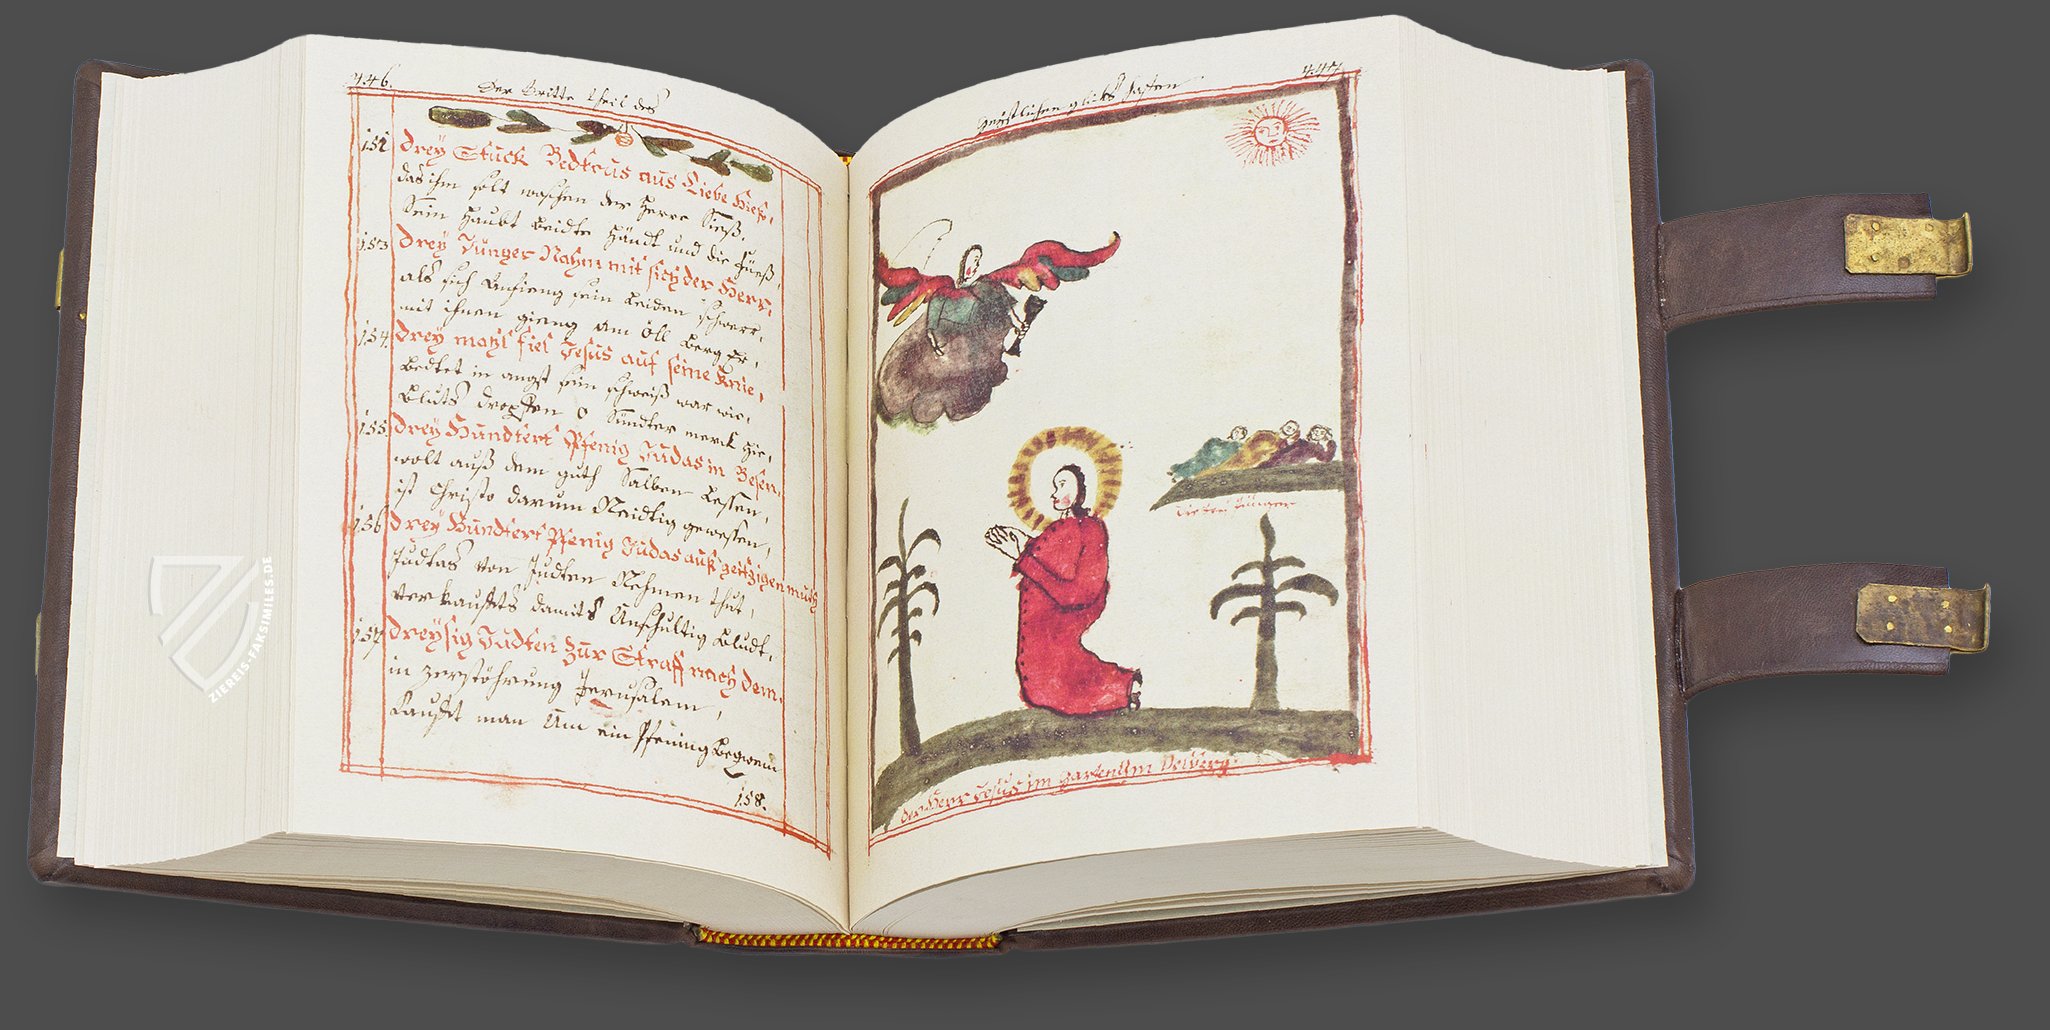 446.
Der Dritte theil des
152 Drey Stuck Bedteus aus Liebe hies,
das ihm solt waschen der Herre Sieß,
Sein Haubt beidte Händt und die Füeß,
153 Drey Jünger Nahm mit sich der Herr,
als sich Anfieng sein Leiden schwerr,
mit ihnen gieng am Öll berg Er,
154. Drey mahl fiel Jesus auf seine Knie,
Bedtet in angst sein schweiß war wie,
Bluts dropfen O Sündter merck hie,
155. Drey Hundtert Pfenig Judas in Besen,
wolt auß dem guth Salben Lessen,
ist Christo darum Neidtig gewessen,
156 Drey Hundtert Pfenig Judas auß geitzigen muth
Judas von Judten Nehmen thut,
verkaufts damits Unschultig bludt,
157 Dreysig Judten Zur Straff nach dem,
in zerstöhrung Jerusalem,
Kaufft man Um ein Pfening Beqwem
158.
447
Geistlichen glicks hafen
die drei Jünger
der Herr Jesus im garten Um Oelberg
ZIEREIS-FAKSIMILES.DE